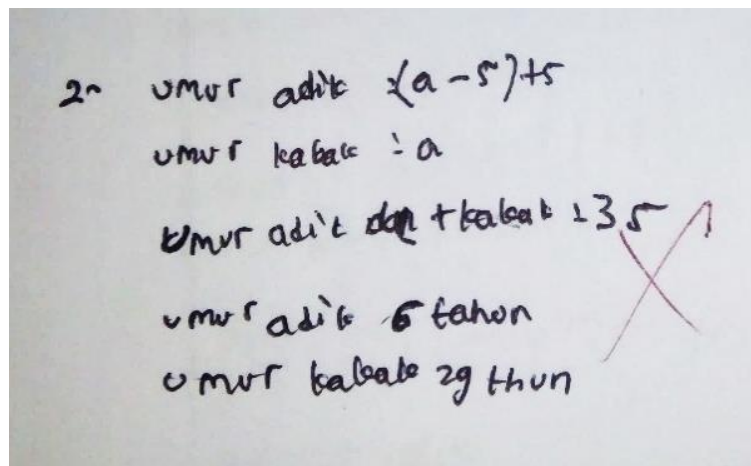 2. umur adik :(a-5)+5
umur kakak : a
Umur adik + kakak : 35
umur adik 6 tahun
umur kakak 29 thun